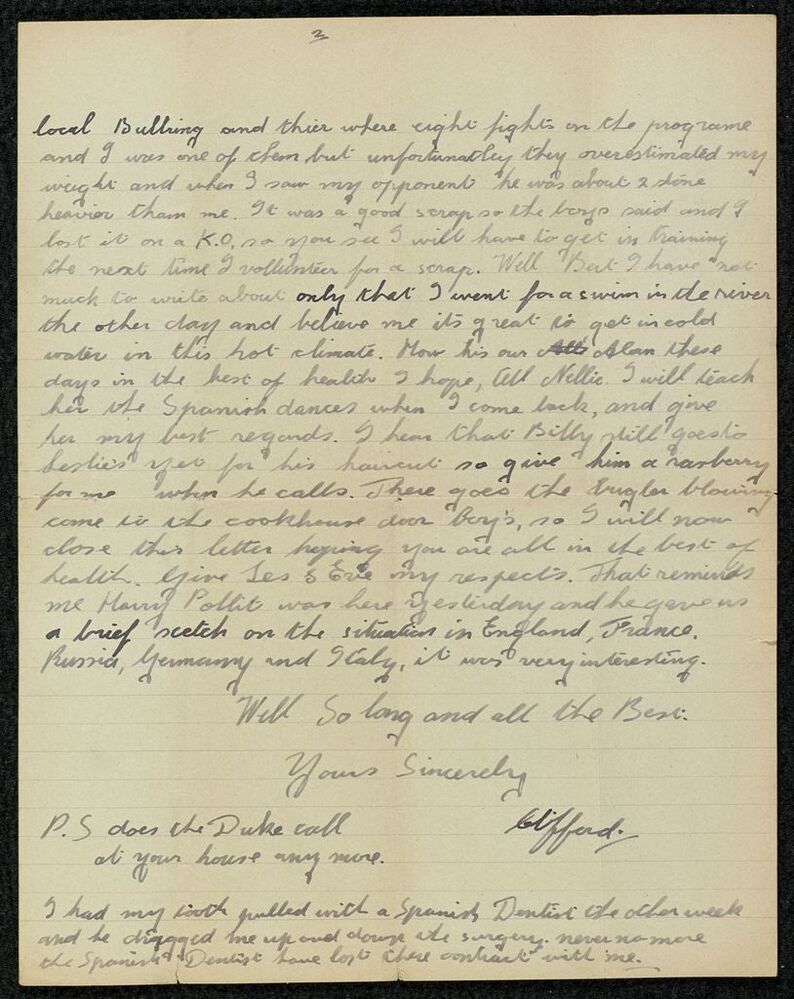 2
local Bullring and thier where eight fights on the programe
and I was one of them, but unfortunatley they overestimated my
weight and when I saw my opponent he was about 2 stone
heavier than me. It was a good scrap so the boys said and I
lost it on a K.O, so you see I will have to get in training
the next time I vollunteer for a scrap. Well Bert I have not
much to write about only that I went for a swim in the river
the other day and believe me its great to get in cold
water in this hot climate. How his our Alan these
days in the best of health I hope, Nellie I will teach
her the Spanish dances when I come back, and give
her my best regards. I hear that Billy still goes to
yet for his haircut so give him a rasberry
for me when he calls. There goes the bugler blowing
come to the cookhouse door boy's, so I will now
close this letter hoping you are all in the best of
health. Give Les & Eve my respects. That reminds
me Harry Pollit was here yesterday and he gave us
a brief scetch on the situation in England, France,
Russia, Germany and Italy, it was very interesting.
Well So long and all the Best.
Yours Sincerely
Clifford.
P.S does the Duke call
at your house any more.
I had my tooth pulled with a Spanish Dentist the other week
and he dragged me up and down the surgery. never no more
the Spanish Dentist have lost there contract with me.